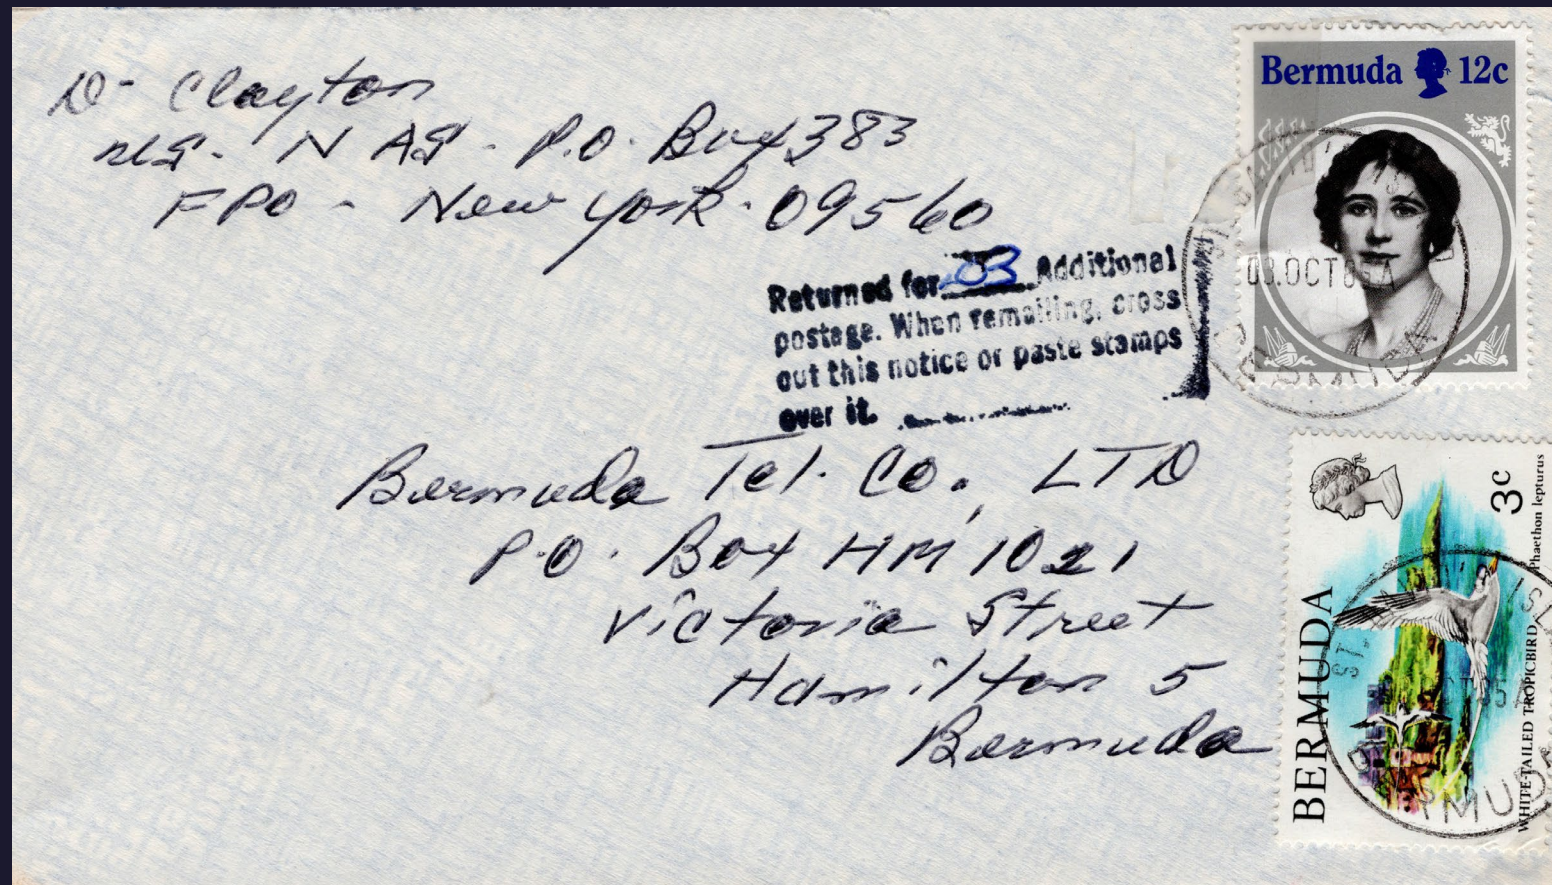 D- Clayton
US- NAS - P.O. Box 383
FPO - New York - 09560
Bermuda 12c
Returned for .03 Additional
postage. When remailing, cross
out this notice or paste stamps
over it.
03.OCT
BERMUDA
Bermuda Tel. Co., LTD
P.O. Box HM 1021
Victoria Street
Hamilton 5
Bermuda
BERMUDA
3c
WHITE-TAILED TROPICBIRD Phaethon lepturus